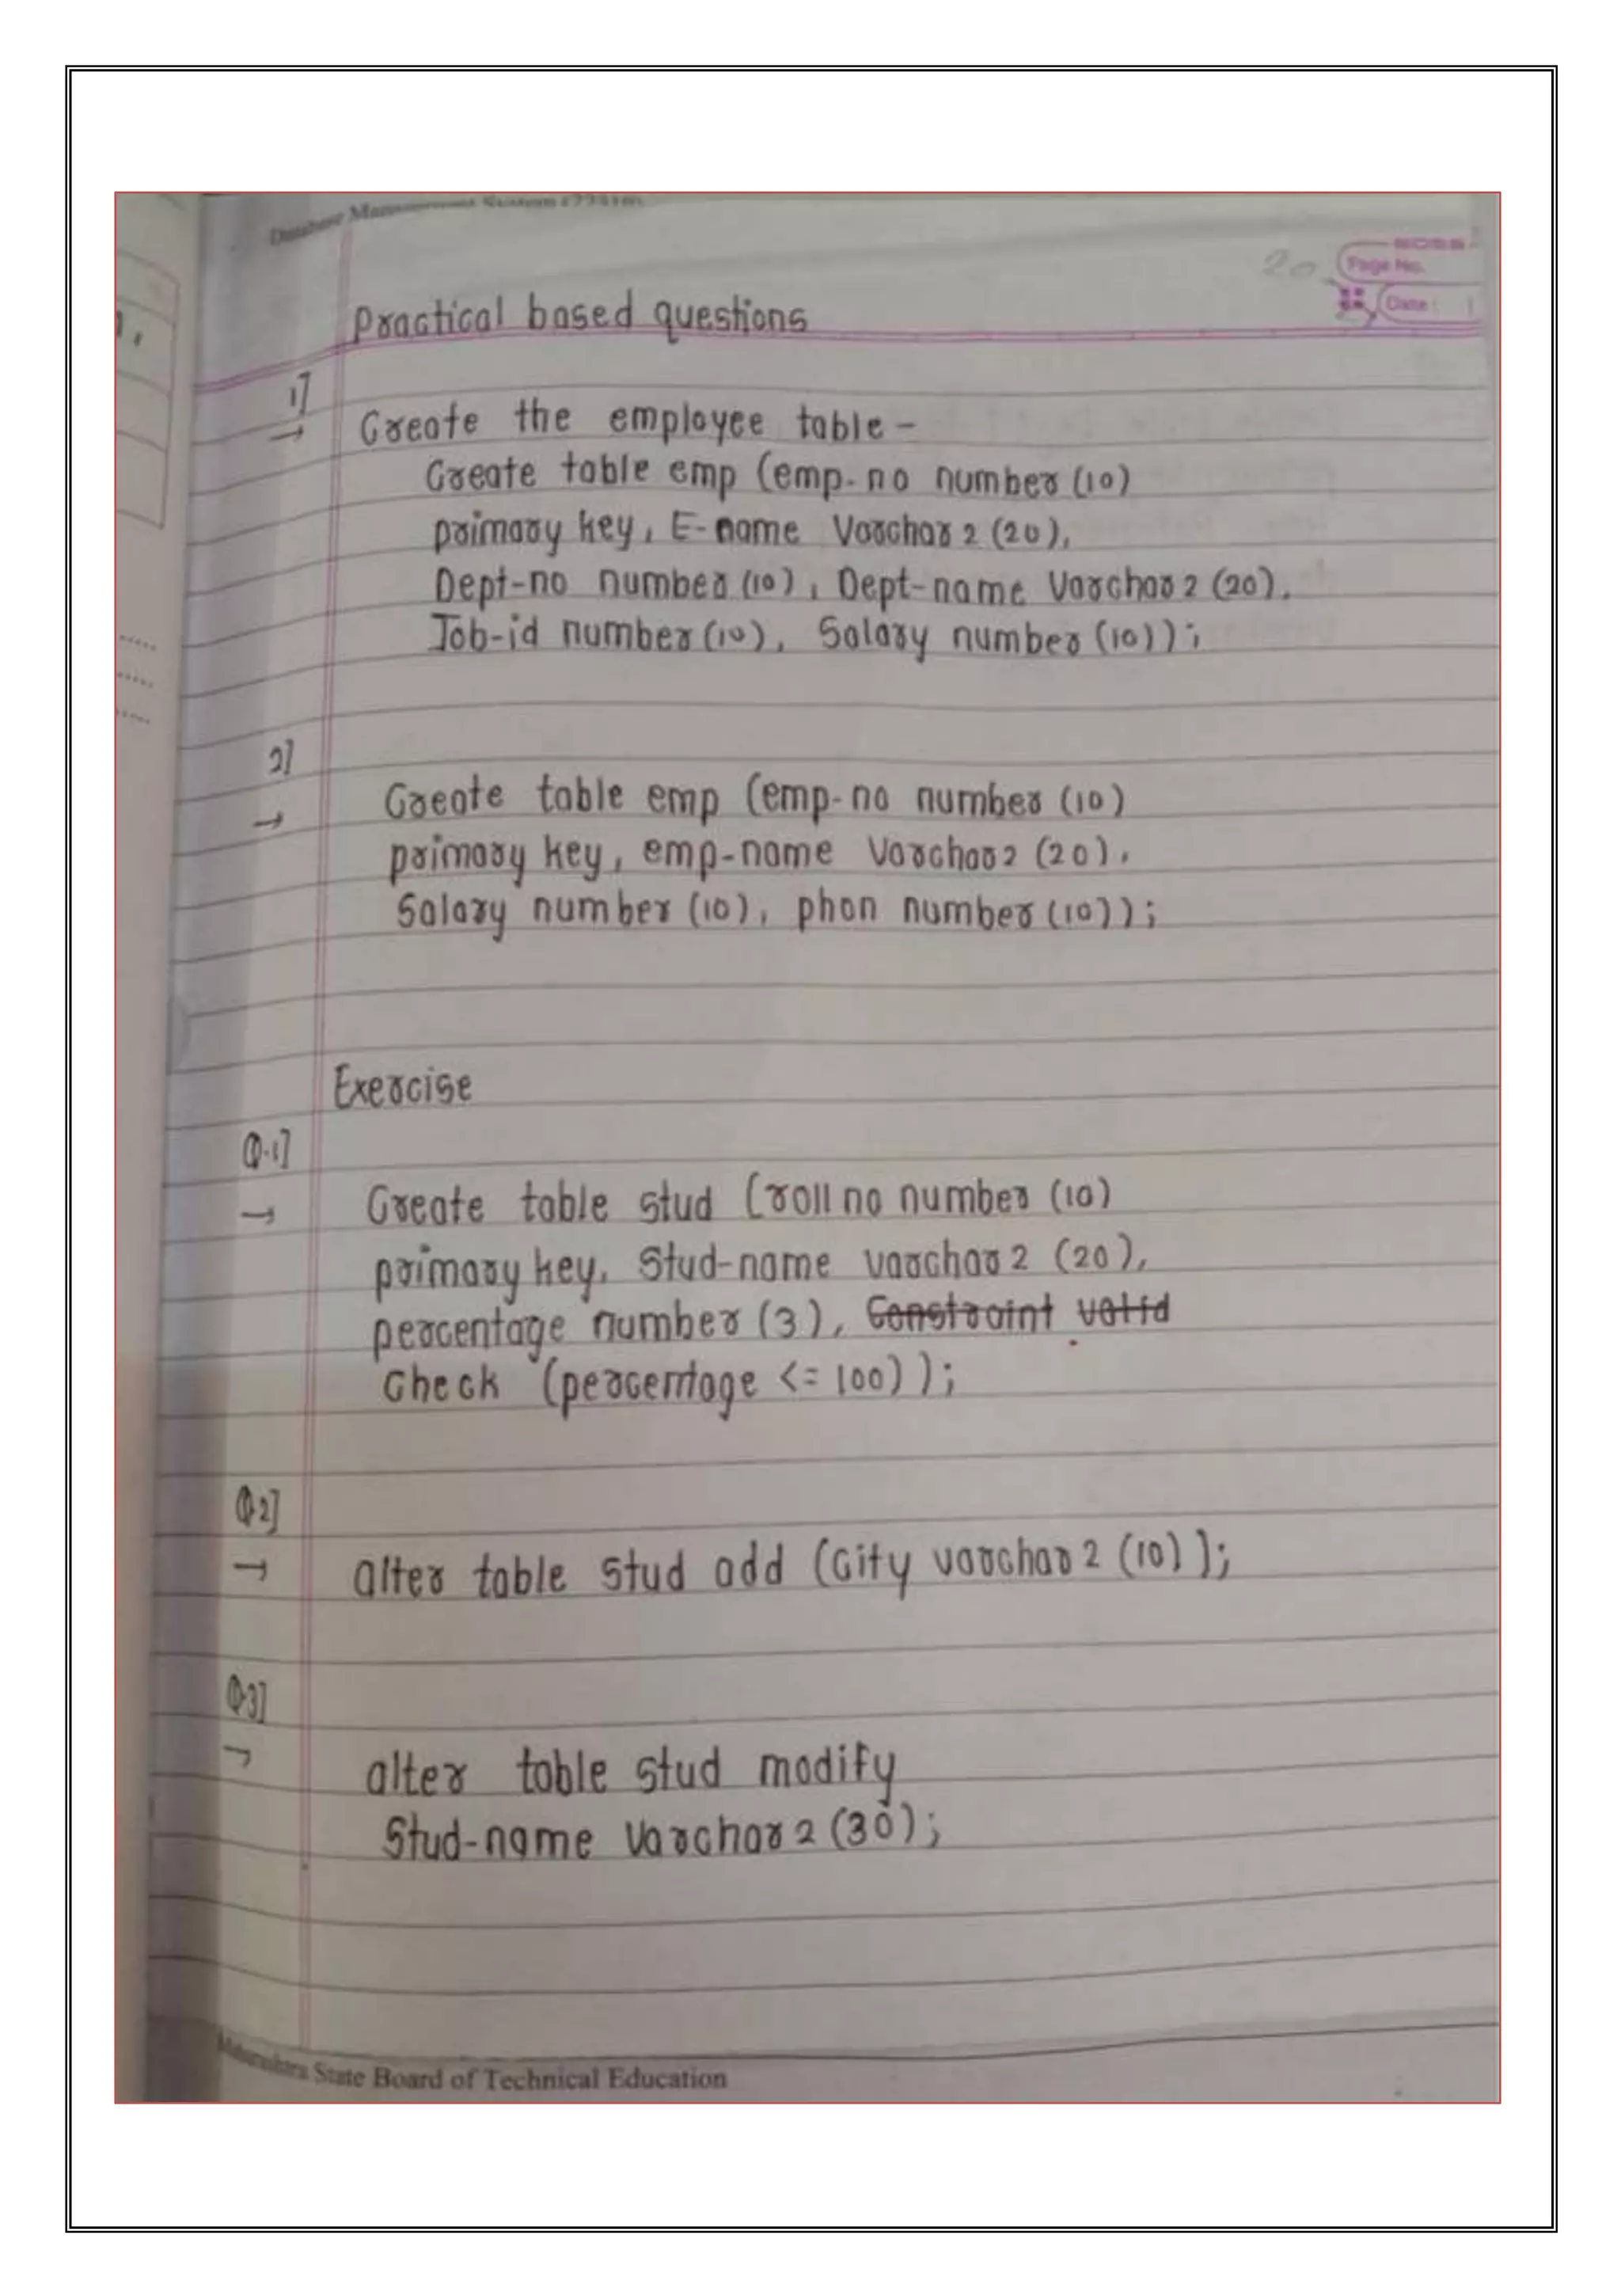 Database Management System (22416)
20
Page No.
Date :
Practical based questions
1]
→ Create the employee table -
Create table emp (emp-no number (10)
primary key, E-name Varchar 2 (20),
Dept-no number (10), Dept-name Varchar 2 (20),
Job-id number (10), Salary number (10));
2]
→ Create table emp (emp-no number (10)
primary key, emp-name Varchar 2 (20),
Salary number (10), phon number (10));
Exercise
Q.1]
→ Create table stud (roll no number (10)
primary key, Stud-name varchar 2 (20),
percentage number (3), Constraint valid
Check (percentage <= 100));
Q.2]
→ alter table stud add (City varchar 2 (10));
Q.3]
→ alter table stud modify
Stud-name Varchar 2 (30);
Maharashtra State Board of Technical Education